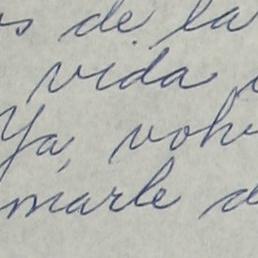 s de la
vida
Ya, volv
marle d